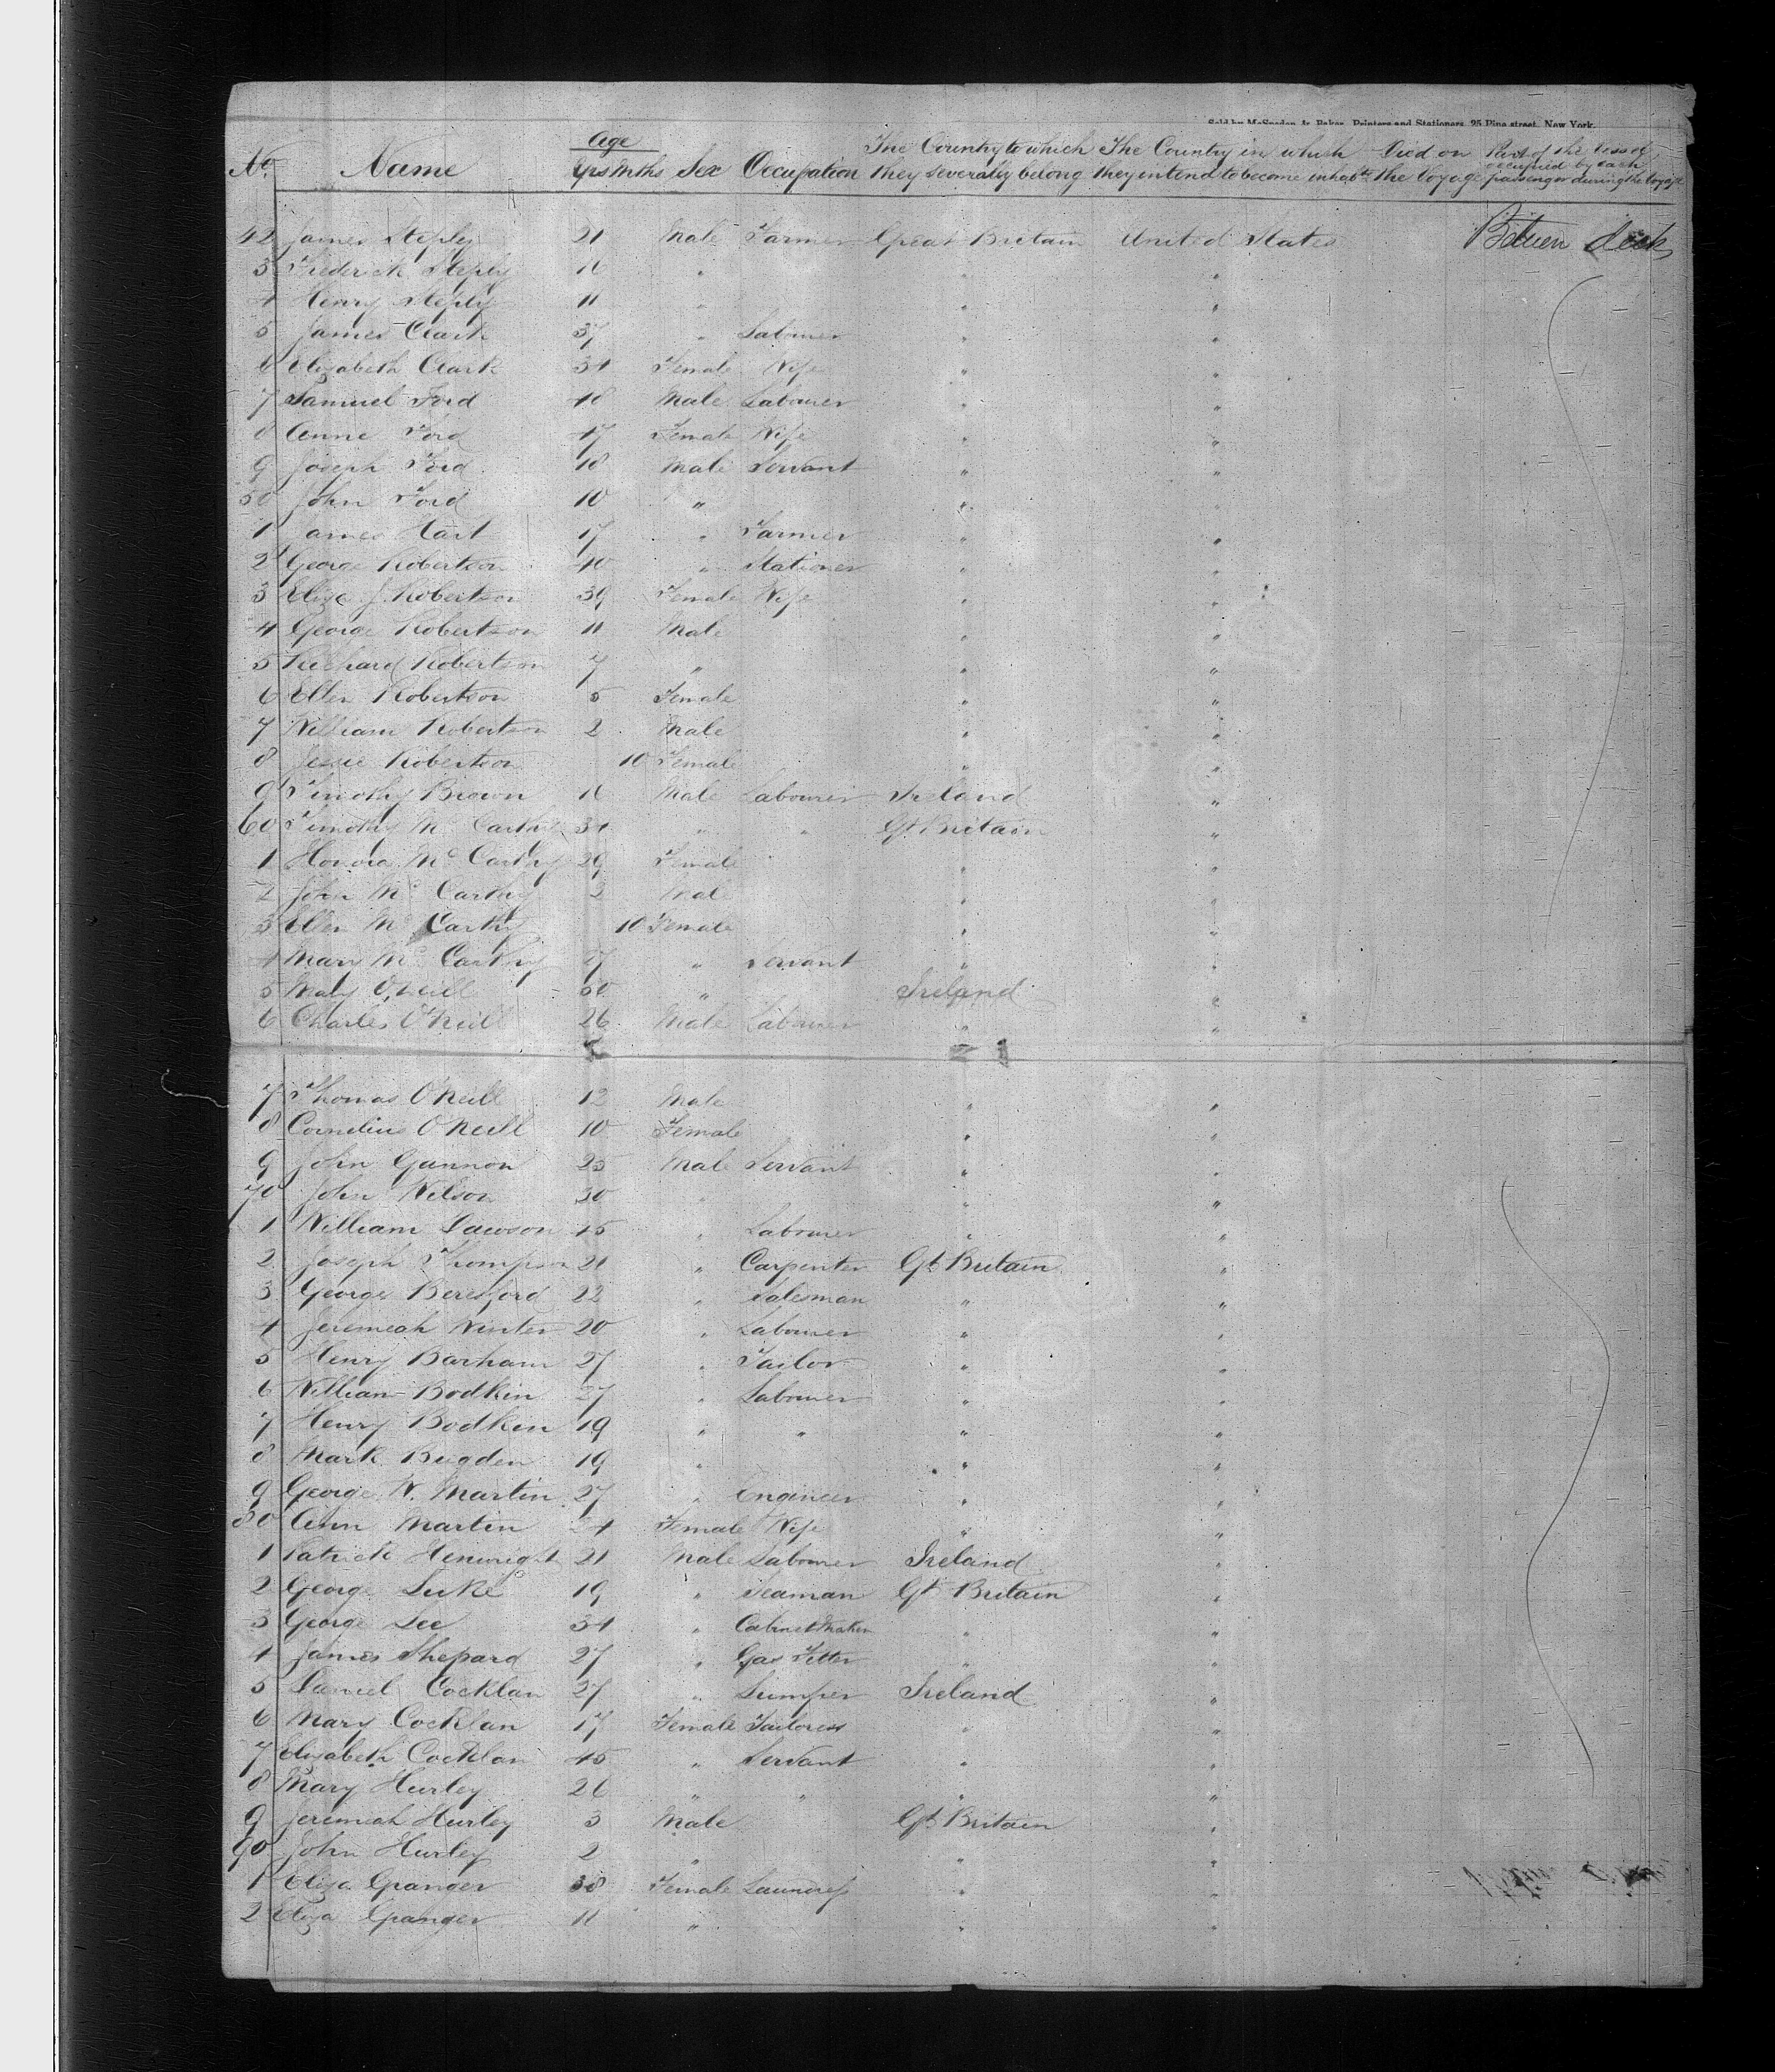 Sold by McSpedon & Baker, Printers and Stationers, 25 Pine street, New York.
No. Name Age Yrs Mths Sex Occupation The Country to which they severally belong The Country in which they intend to become inhabts Died on the Voyage Part of the Vessel occupied by each passenger during the Voyage
42 James Steply 21 Male Farmer Great Britain United States Betwen deck
3 Frederick Steply 16 " " "
4 Henry Steply 11 " " "
5 James Clark 37 " Labourer " "
6 Elizabeth Clark 34 Female Wife " "
7 Samuel Ford 48 Male Labourer " "
8 Anne Ford 47 Female Wife " "
9 Joseph Ford 18 Male Servant " "
50 John Ford 10 " " "
1 James Hart 17 " Farmer " "
2 George Robertson 40 " Stationer " "
3 Eliza J. Robertson 39 Female Wife " "
4 George Robertson 11 Male " "
5 Richard Robertson 7 " " "
6 Ellen Robertson 5 Female " "
7 William Robertson 2 Male " "
8 Jessie Robertson 10 Female " "
9 Timothy Brown 16 Male Labourer Ireland "
60 Timothy McCarthy 34 " " Gt Britain "
1 Honora McCarthy 29 Female " "
2 John McCarthy 2 Male " "
3 Ellen McCarthy 10 Female " "
4 Mary McCarthy 27 " Servant " "
5 Mary O'Neill 50 " Ireland "
6 Charles O'Neill 26 Male Labourer " "
7 Thomas O'Neill 12 Male " "
8 Cornelius O'Neill 10 Female " "
9 John Gannon 25 Male Servant " "
70 John Wilson 30 " " "
1 William Dawson 45 " Labourer " "
2 Joseph Thompson 21 " Carpenter Gt Britain "
3 George Beresford 22 " Salesman " "
4 Jeremeah Winter 20 " Labourer " "
5 Henry Barham 27 " Tailor " "
6 William Bodkin 27 " Labourer " "
7 Henry Bodken 19 " " " "
8 Mark Bugden 19 " " "
9 George W. Martin 27 " Engineer " "
80 Ann Martin 24 Female Wife " "
1 Patrick Henwright 21 Male Labourer Ireland "
2 George Luke 19 " Seaman Gt Britain "
3 George Lee 34 " Cabinet Maker " "
4 James Shepard 27 " Gas Fitter " "
5 Daniel Cocklan 27 " Lumper Ireland "
6 Mary Cocklan 17 Female Tailoress " "
7 Elizabeth Cocklan 45 " Servant " "
8 Mary Hurley 26 " " " "
9 Jeremiah Hurley 3 Male Gt Britain "
90 John Hurley 2 " " "
1 Eliza Granger 38 Female Laundress " "
2 Eliza Granger 11 " " "